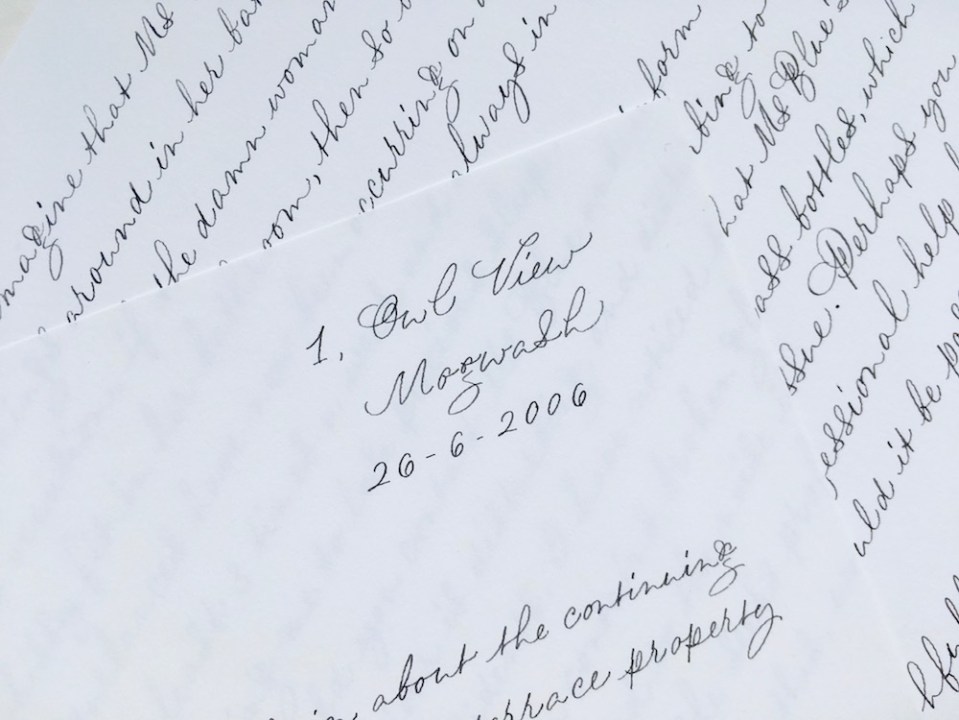 magine that Ms
around in her ba
the damn woman
oom, then so
curring on
lways in
form
bing to
hat Ms Blue's
ass bottles, which
ssue. Perhaps you
essional help
uld it be
1, Owl View
Mogwash
26-6-2006
about the continuing
errace property